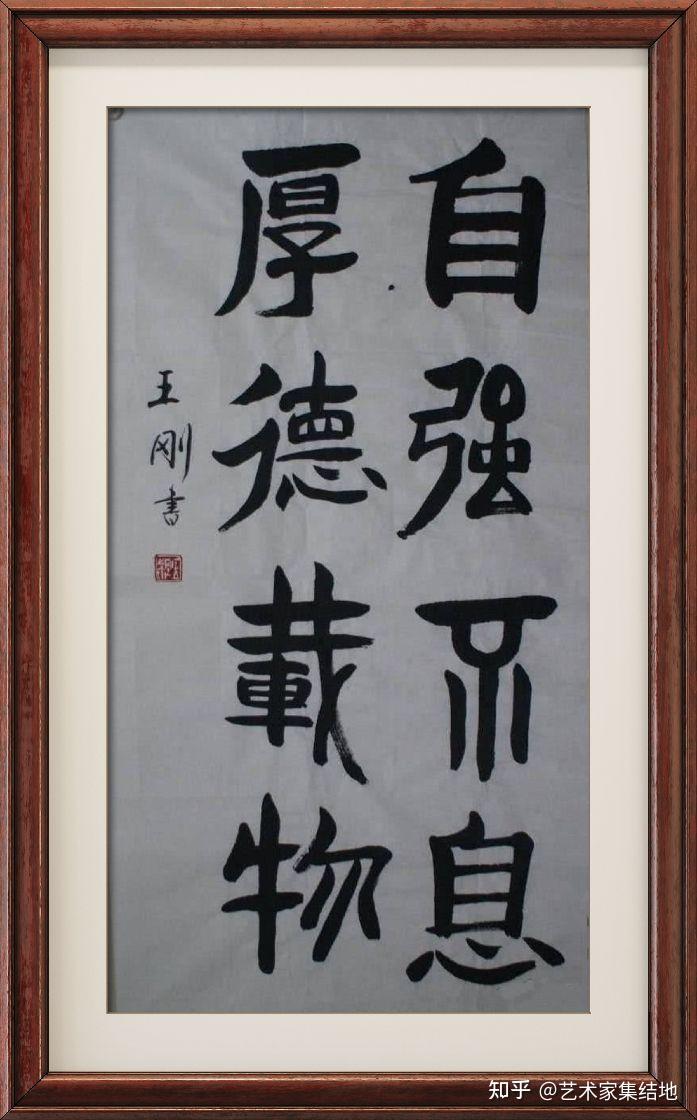 自强不息
厚德載物
王刚书
知乎 @艺术家集结地